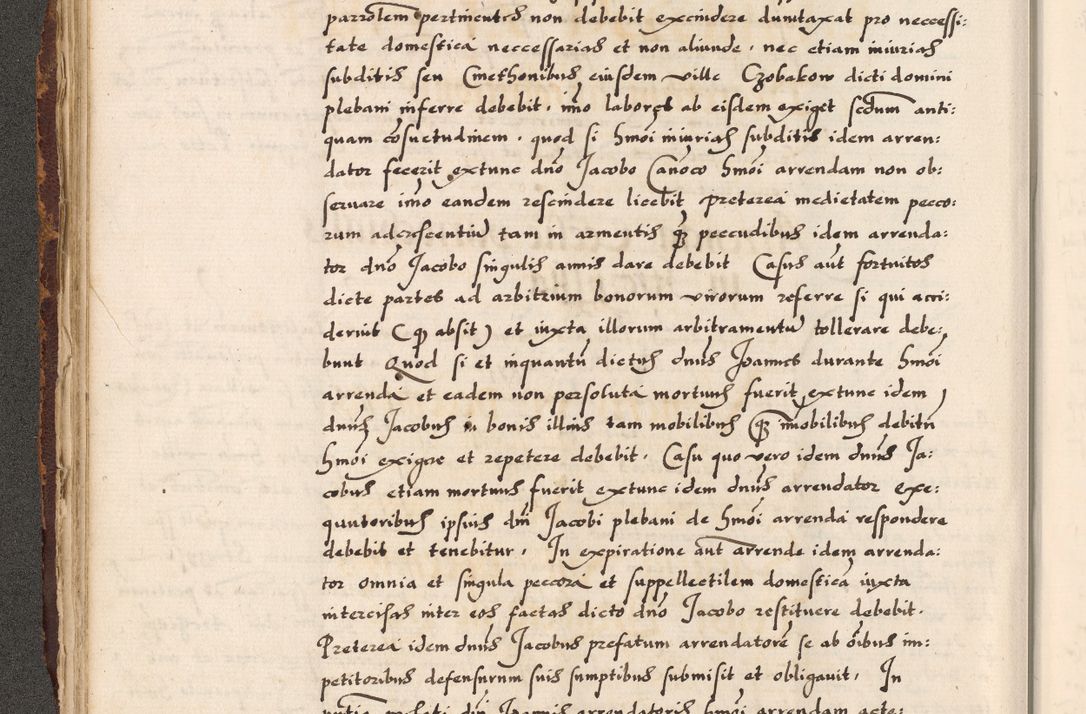 parrochialem pertinentes non debebit excindere duntaxat pro neccessi:
tate domestica neccessarias et non aliunde, nec etiam iniurias
subditis seu Cmethonibus eiusdem ville Czobakow dicti domini
plebani inferre debebit, imo labores ab eisdem exiget secdum anti:
quam cosuetudinem, quod si hmoi iniurias subditis idem arren:
dator fecerit extunc dno Jacobo Canoco hmoi arrendam non ob:
seruare imo eandem rescindere licebit preterea medietatem pecco:
rum adcrescentiu tam in armentis q peccudibus idem arrenda:
tor dno Jacobo singulis annis dare debebit Casus aut fortuitos
dicte partes ad arbitrium bonorum virorum referre si qui acci:
derint (q absit) et iuxta illorum arbitramentu tollerare debe:
bunt Quod si et inquantu dictus dnus Joannes durante hmoi
arrenda et eadem non persoluta mortuus fuerit extunc idem
dnus Jacobus in bonis illius tam mobilibus q immobilibus debitu
hmoi exigere et repetere debebit. Casu quo vero idem dnus Ja:
cobus etiam mortuus fuerit extunc idem dnus arrendator exe:
quutoribus ipsius dni Jacobi plebani de hmoi arrenda respondere
debebit et tenebitur. In expiratione aut arrende idem arrenda:
tor omnia et singula peccora et suppellectilem domestica iuxta
intercisas inter eos factas dicto dno Jacobo restituere debebit.
Preterea idem dnus Jacobus prefatum arrendatore se ab oibus im:
petitoribus defensurum suis sumptibus submisit et obligauit. In
dni Joannis arrendatoris hmoi arrendam acte: